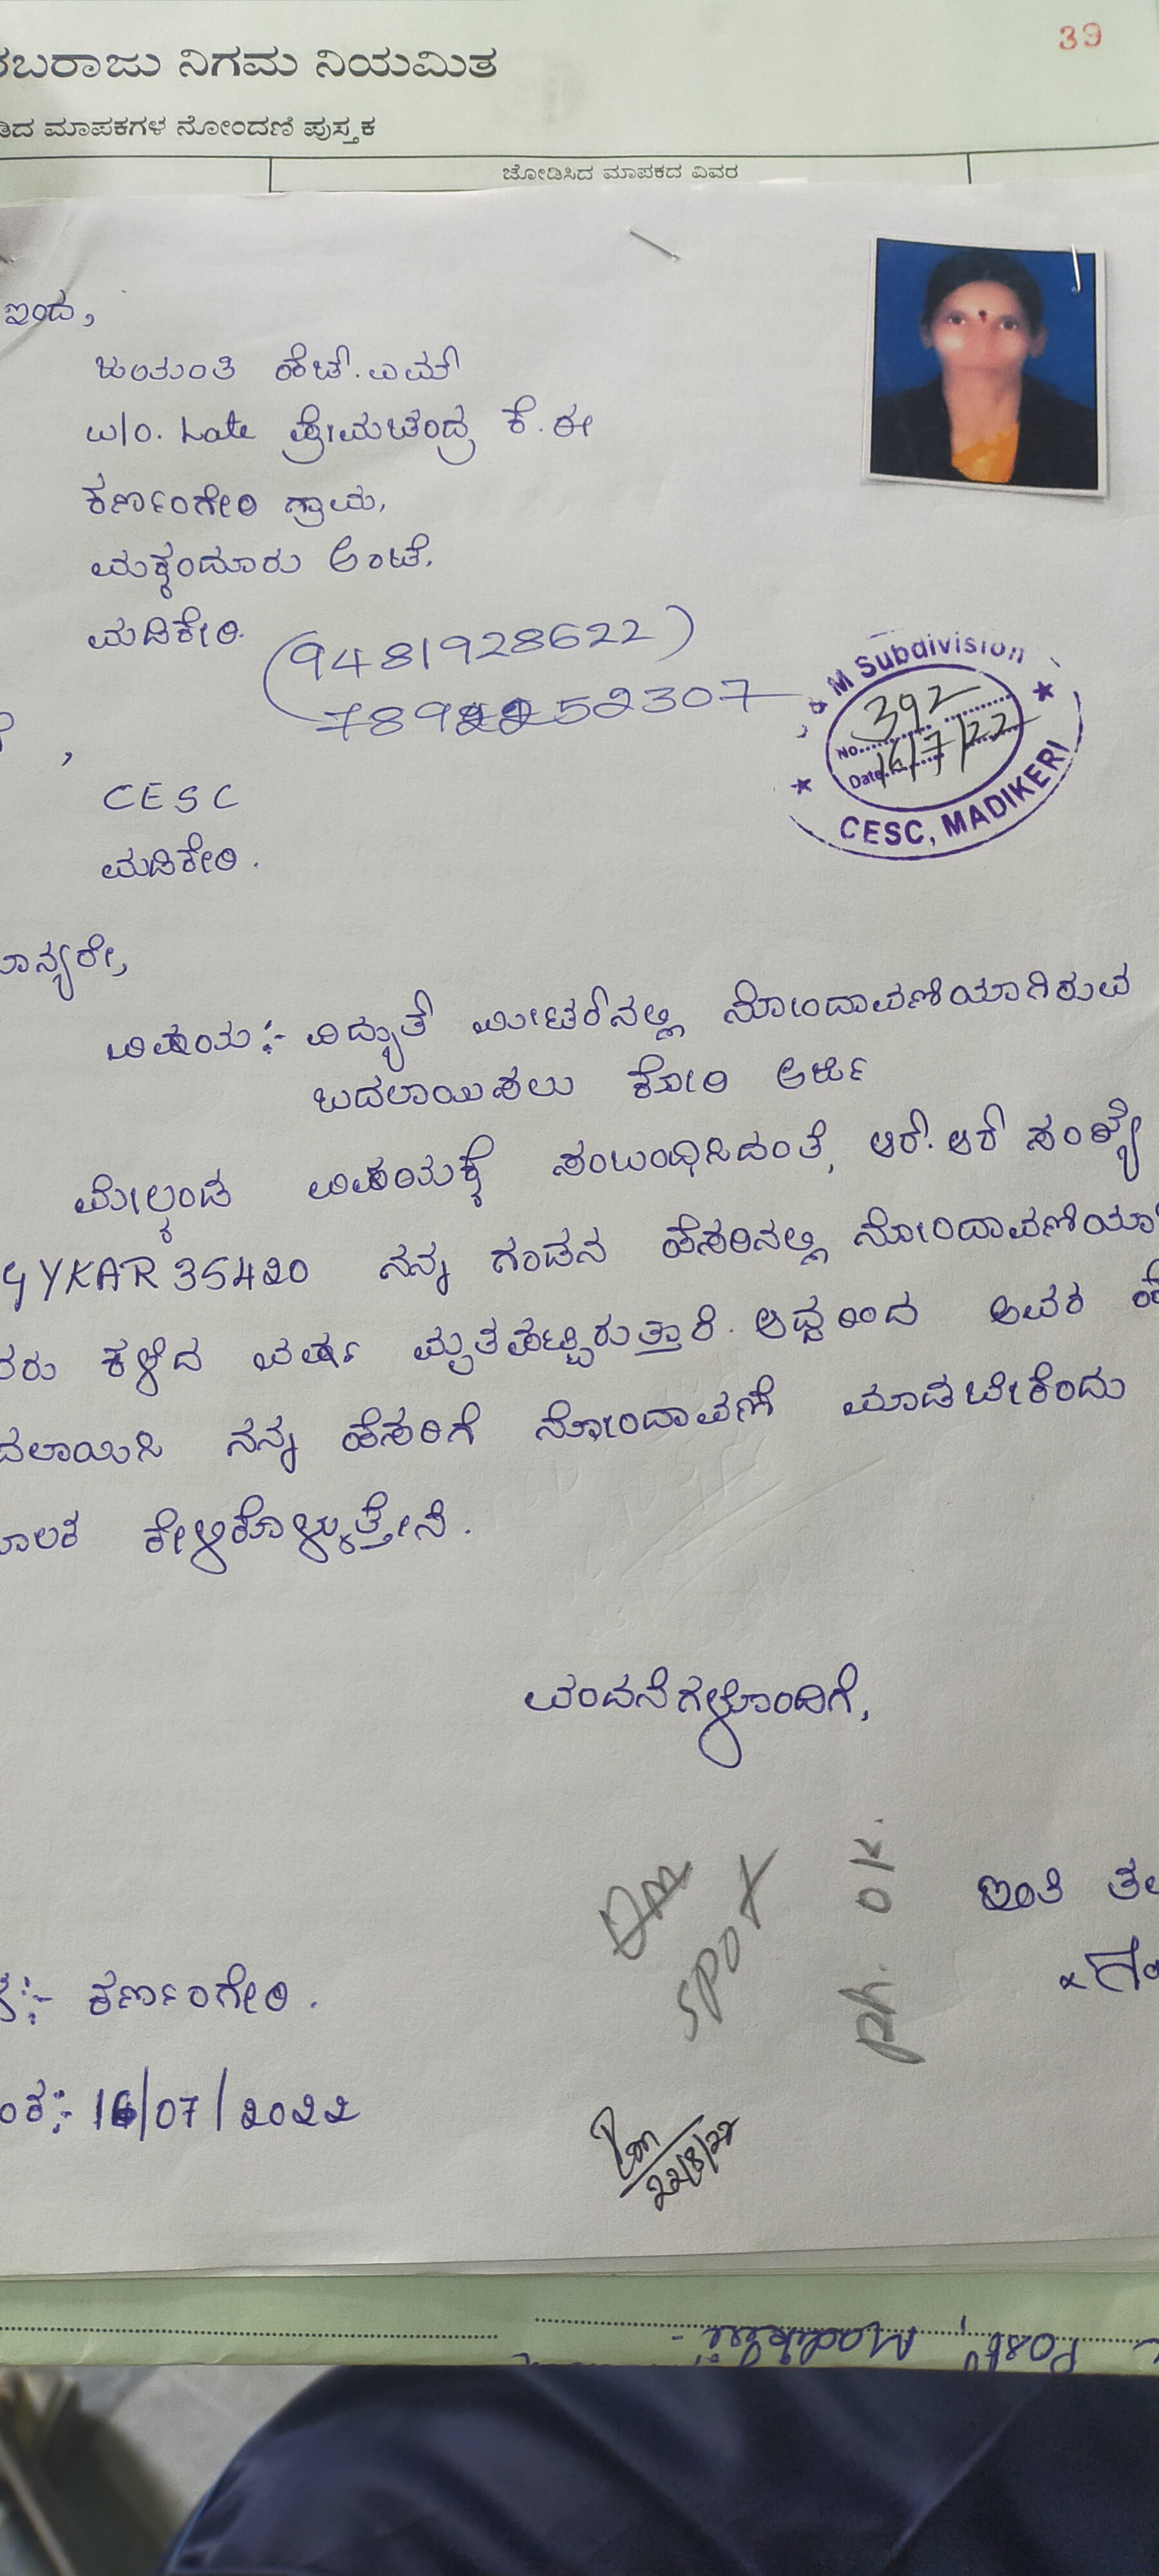 39
ರಬರಾಜು ನಿಗಮ ನಿಯಮಿತ
ಮಾಪಕಗಳ ನೋಂದಣಿ ಪುಸ್ತಕ
ಜೋಡಿಸಿದ ಮಾಪಕದ ವಿವರ
ಇಂದ,
ಹೆಚ್.ಎಮ್
w/o. Late ಪ್ರೇಮಚಂದ್ರ ಕೆ.ಈ
ಕರ್ಣಂಗೇರಿ ಗ್ರಾಮ,
ಮಕ್ಕಂದೂರು ಅಂಚೆ.
ಮಡಿಕೇರಿ.
(9481928622)
& M Subdivision
No. 392
Date 16/7/22
CESC, MADIKERI
CESC
ಮಡಿಕೇರಿ.
ಮಾನ್ಯರೇ,
ವಿಷಯ:- ವಿದ್ಯುತ್ ಮೀಟರ್‌ನಲ್ಲಿ ನೋಂದಾವಣೆಯಾಗಿರುವ
ಬದಲಾಯಿಸಲು ಕೋರಿ ಅರ್ಜಿ
ಮೇಲ್ಕಂಡ ವಿಷಯಕ್ಕೆ ಸಂಬಂಧಿಸಿದಂತೆ, ಆರ್.ಆರ್ ಸಂಖ್ಯೆ
GYKAR35420 ನನ್ನ ಗಂಡನ ಹೆಸರಿನಲ್ಲಿ ನೋಂದಾವಣೆಯಾಗಿ
ವರು ಕಳೆದ ವರ್ಷ ಮೃತಪಟ್ಟಿರುತ್ತಾರೆ. ಆದ್ದರಿಂದ ಅವರ ಹೆ
ದಲಾಯಿಸಿ ನನ್ನ ಹೆಸರಿಗೆ ನೋಂದಾವಣೆ ಮಾಡಬೇಕೆಂದು
ಮೂಲಕ ಕೇಳಿಕೊಳ್ಳುತ್ತೇನೆ.
ವಂದನೆಗಳೊಂದಿಗೆ,
spot
ph. OK.
ಇಂತಿ ತಮ
ಳ:- ಕರ್ಣಂಗೇರಿ.
ಂಕ:- 16/07/2022
22/8/22
Post, Madikeri -